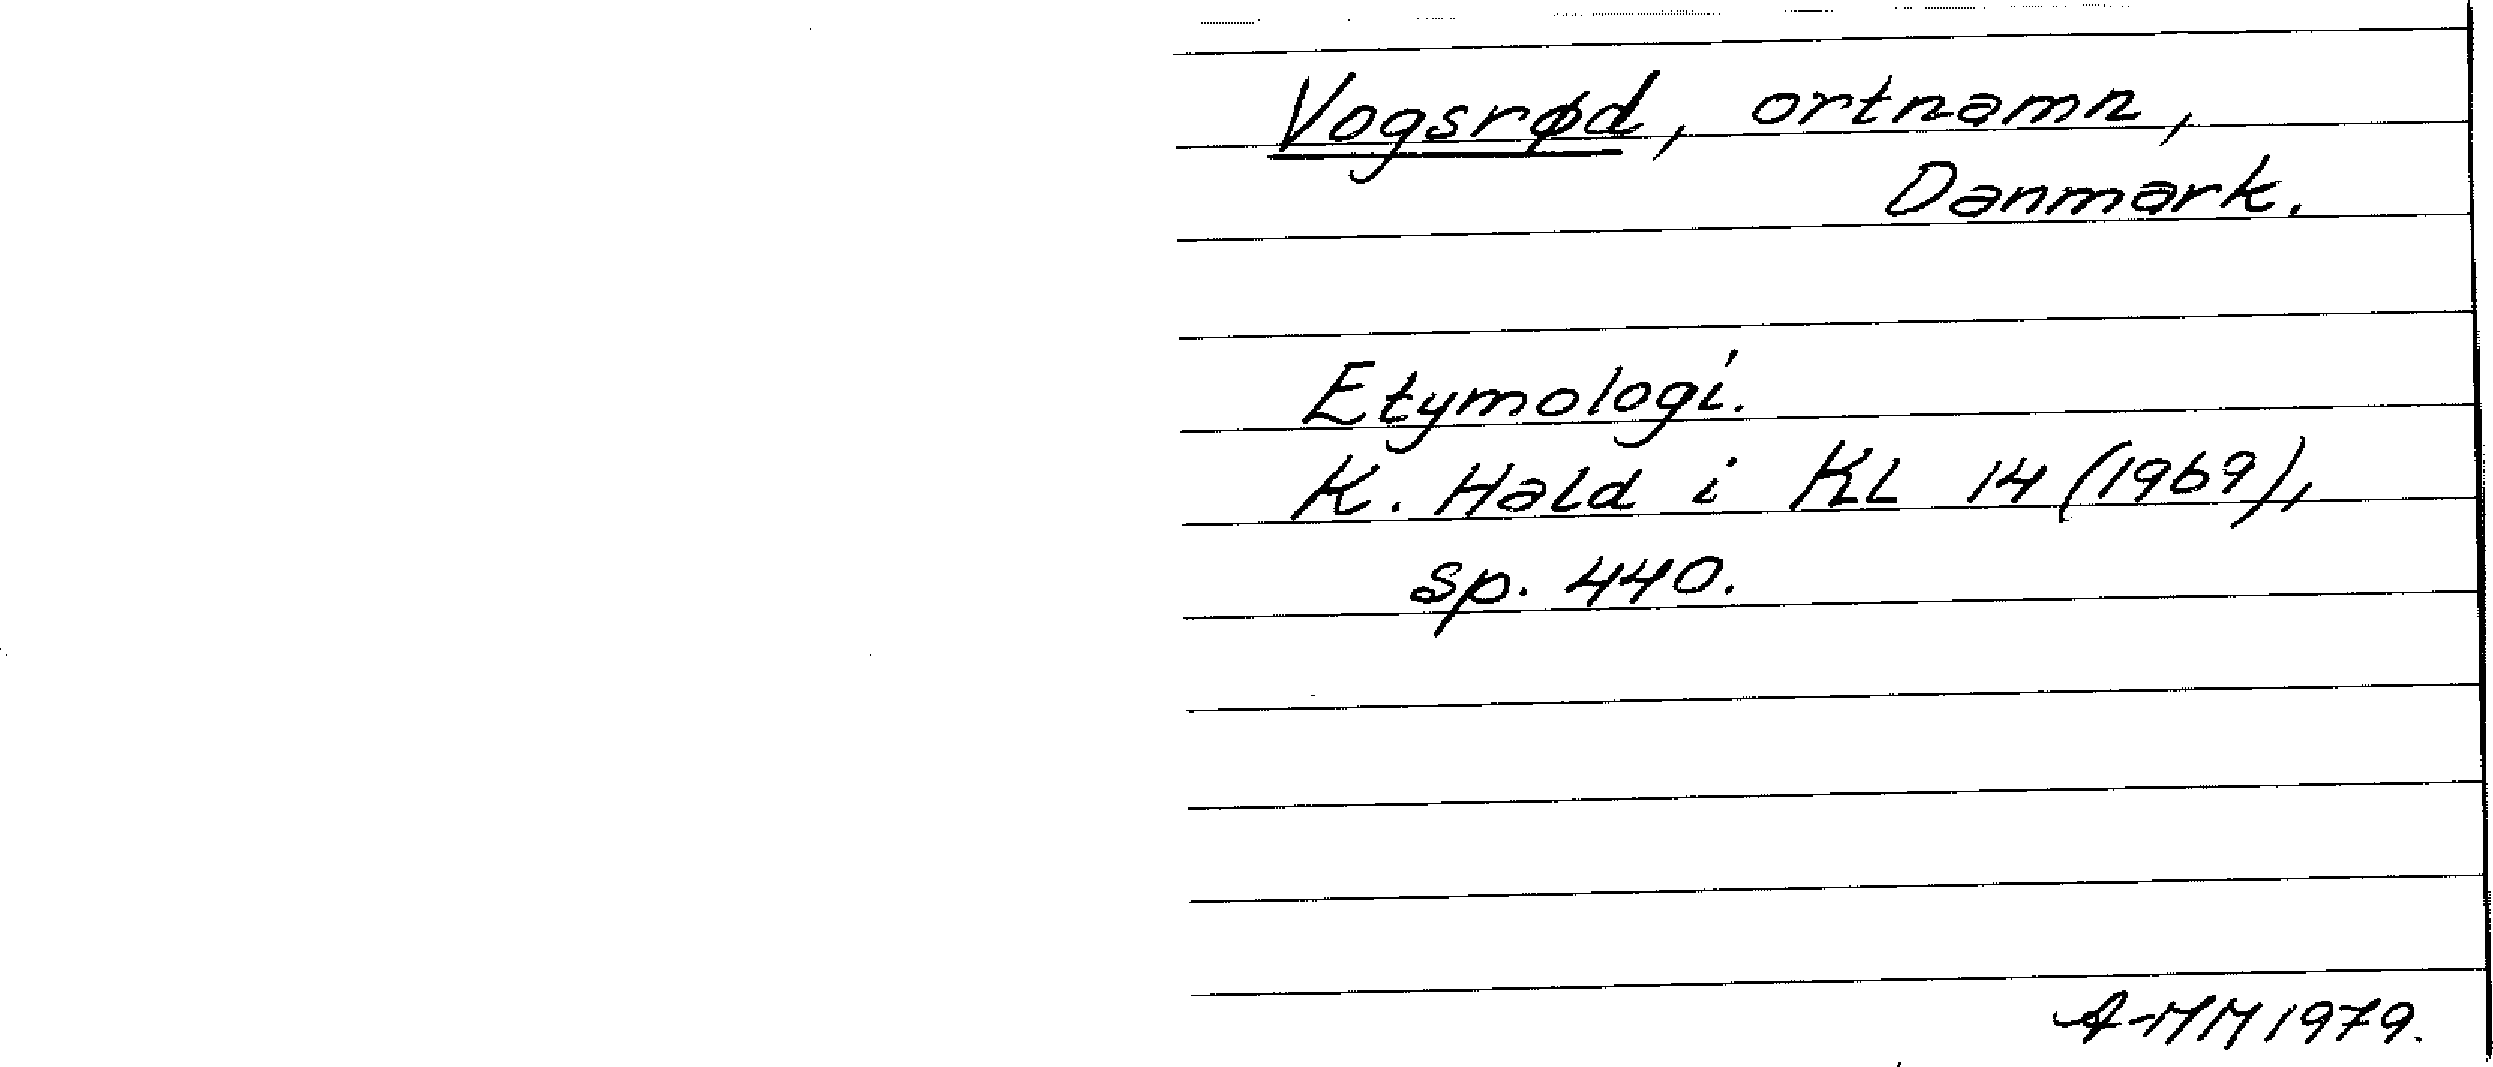 Vogsrød, ortnamn,
Danmark.
Etymologi.
K. Hald i KL 14 (1969),
sp. 440.
A-MM 1979.